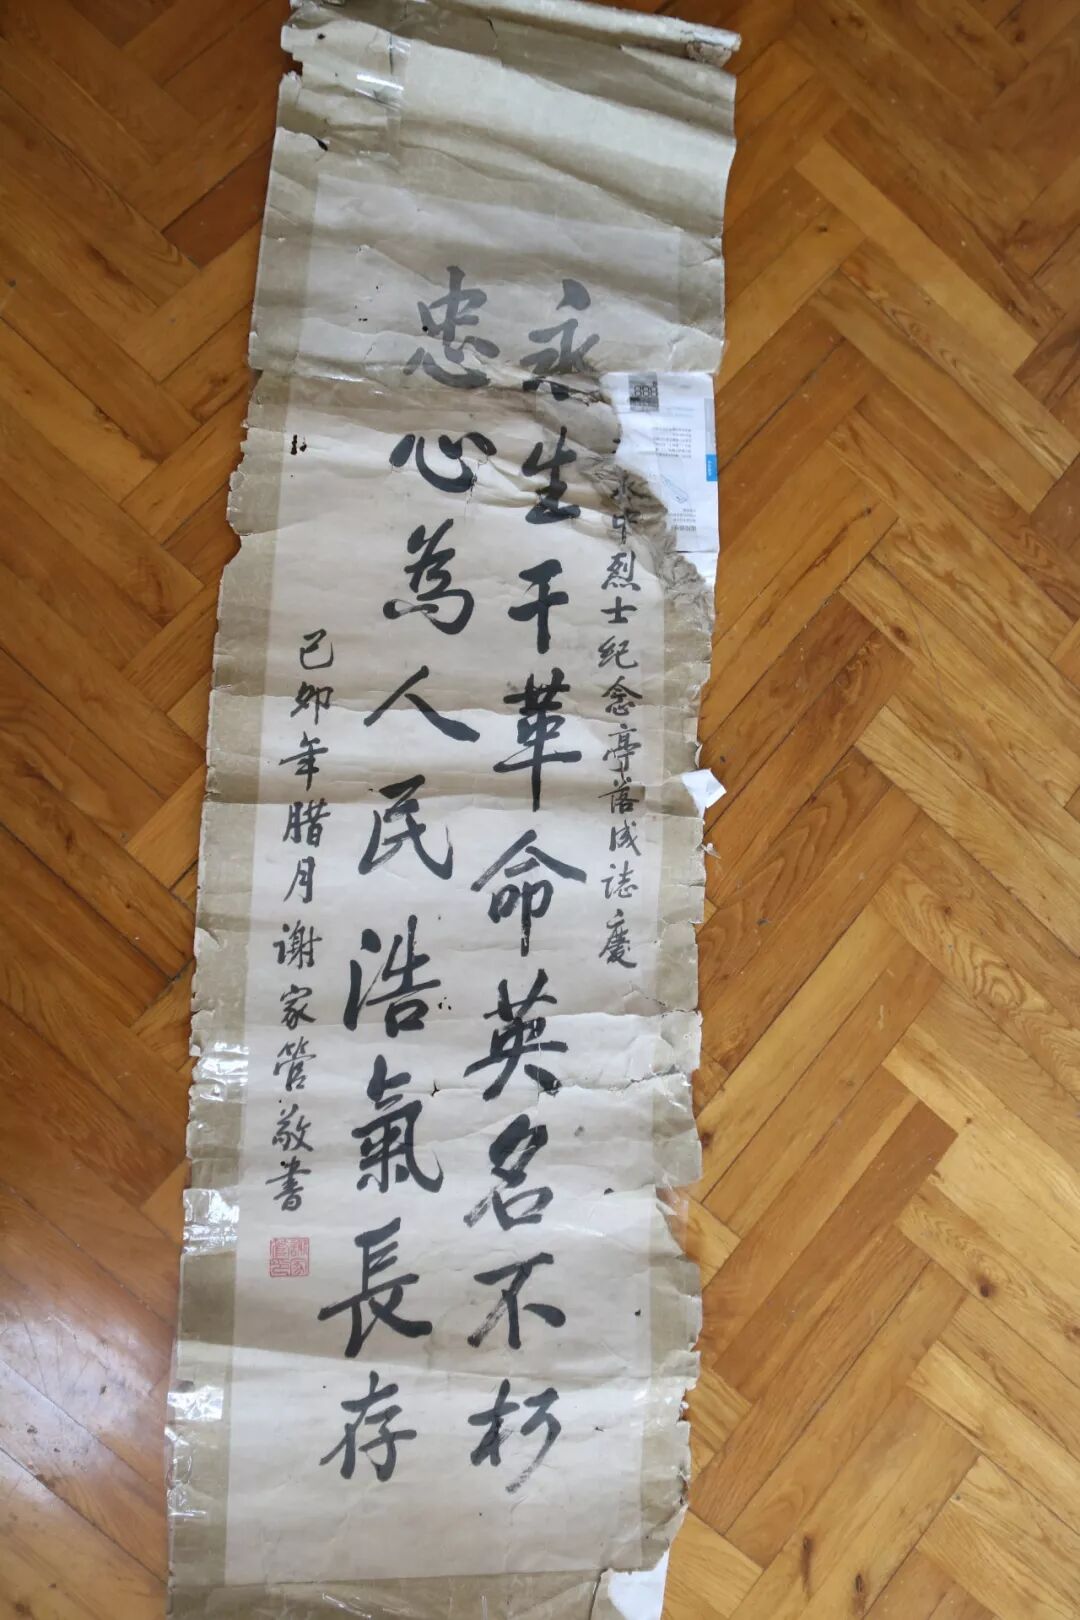 永中烈士纪念亭落成誌慶
永生干革命英名不朽
忠心為人民浩氣長存
己卯年腊月谢家管敬書